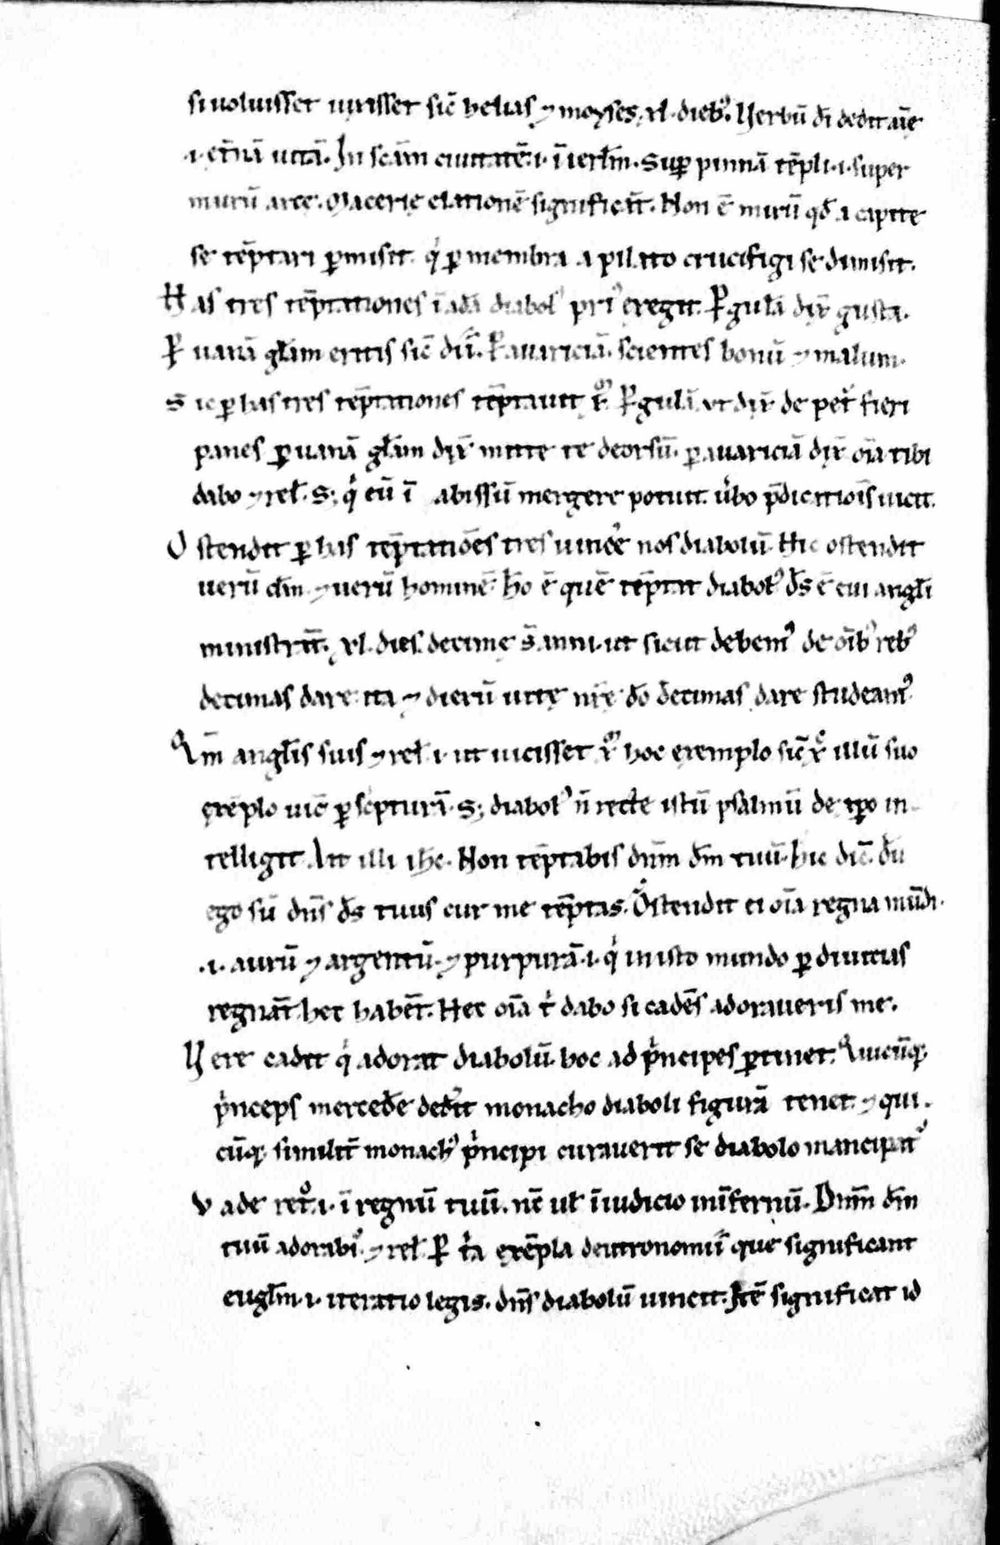 si uoluisset uixisset sic̄ helias ⁊ moyses. xl. dieb᷒. Uerbū dī dedit aīe
.i. et̄nā uitā. In scām ciuitatē .i. ī ierlm̄. Suꝑ pinnā tēpli .i. super
murū arce. Macerię elationē significat̄. Non ē mirū qd̄ a capite
se tēptari ꝑmisit. qͥ ꝑ membra a pilato crucifigi se dimisit.
Has tres tēptationes ī adā diabol᷒ pri᷒ ęregit. Ꝑ gulā dix̄ gusta.
Ꝑ uanā gl̄am eritis sic̄ dii. Ꝑ auariciā. scientes bonū ⁊ malum.
Sic ꝑ has tres tēptationes tēptauit Ꝑ gulā ut dix̄ de pet̄ fieri
panes ꝑ uanā gl̄am dix̄ mitte te deorsū. ꝑ auariciā dix̄ oīa tibi
dabo ⁊ rel̄. S; qͥ eū ī abissū mergere potuit. ūbo p̄dictiōis uicit.
Ostendit ꝑ has tēptatiōes tres uincͤe nos diabolū. Hic ostendit
uerū dm̄ ⁊ uerū hominē. hō ē quē tēptat diabol᷒ ds̄ ē cui angl̄i
ministrant̄. xl. dies decimę s̄ anni. ut sicut debem᷒ de oīb᷒ reb᷒
decimas dare ita ⁊ dierū uitę nr̄ę dō decimas dare studeam᷒
Qm̄ angl̄is suis ⁊ rel̄ .i. ut uicisset hoc ęxemplo sic̄ illū suo
ęxēplo uic̄ ꝑ scpturā. S; diabol᷒ n̄ recte istū psalmū de xp̄o in
telligit. Ait illi ihc. Non tēptabis dnm̄ dm̄ tuū. hic dic̄. dū
ego sū dns̄ ds̄ tuus cur me tēptas. Ostendit ei oīa regna mūdi.
.i. aurū ⁊ argentū ⁊ purpurā .i. qͥ in isto mundo ꝑ diuitias
regnāt hec habēt. Hec oīa tͥ dabo si cadēs adoraueris me.
Uere cadit qͥ adorat diabolū. hoc ad pͥncipes ꝑtinet. Quicūq;
pͥnceps mercedē dedͤit monacho diaboli figurā tenet ⁊ qui
cūq; similit̄ monach᷒ pͥncipi curauerit se diabolo mancipat᷒
Vade ret͛ .i. ī regnū tuū. nc̄ ul̄ ī iudicio in īfernū. Dnm̄ dm̄
tuū adorabi᷒ ⁊ rel̄. Ꝑ tͥa ęxēpla deutronomii que significant
eugl̄m .i. iteratio legis. dns̄ diabolū uincit. Itē significat id